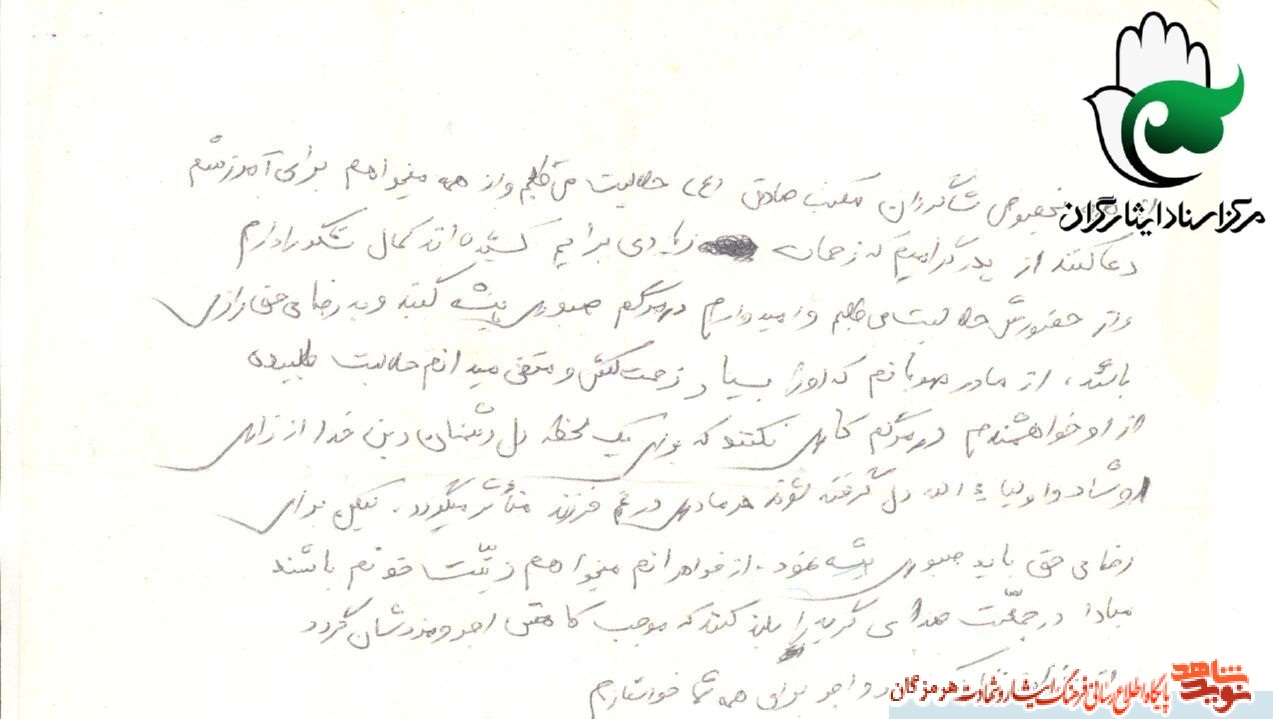 مرکز اسناد ایثارگران
بخصوص شاگردان مکتب صادق (ع) حلالیت می‌طلبم و از همه میخواهم برای آمرزشم
دعا کنند از پدر گرامیم که زحمات زیادی برایم کشیده‌اند کمال تشکر را دارم
و از حضورش حلالیت می‌طلبم و امیدوارم در مرگم صبوری پیشه کنند و به رضای حق راضی
باشند، از مادر مهربانم که او را بسیار زحمت‌کش و متقی میدانم حلالیت طلبیده
از او خواهشمندم در مرگم کاری نکنند که برای یک لحظه دل دشمنان دین خدا از زاری
او شاد و اولیاء الله دل گرفته شوند هر مادری در غم فرزند متأثر میگردد. لیکن برای
رضای حق باید صبوری پیشه نمود. از خواهرانم میخواهم زینت خونم باشند
مبادا در جمعیت صدای گریه را بلند کنند که موجب کاهش اجر و مزدشان گردد
و اجر برای همه شما خواستارم
نوید شاهد
پایگاه اطلاع رسانی فرهنگ ایثار و شهادت هرمزگان